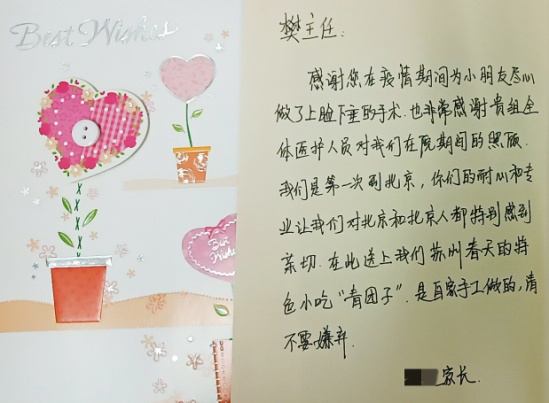 Best Wishes
Best
Wishes
樊主任:
感谢您在疫情期间为小朋友尽心
做了上睑下垂的手术.也非常感谢贵组全
体医护人员对我们在院期间的照顾.
我们是第一次到北京,你们的耐心和专
业让我们对北京和北京人都特别感到
亲切.在此送上我们苏州春天的特
色小吃“青团子”.是自家手工做的,请
不要嫌弃.
家长.